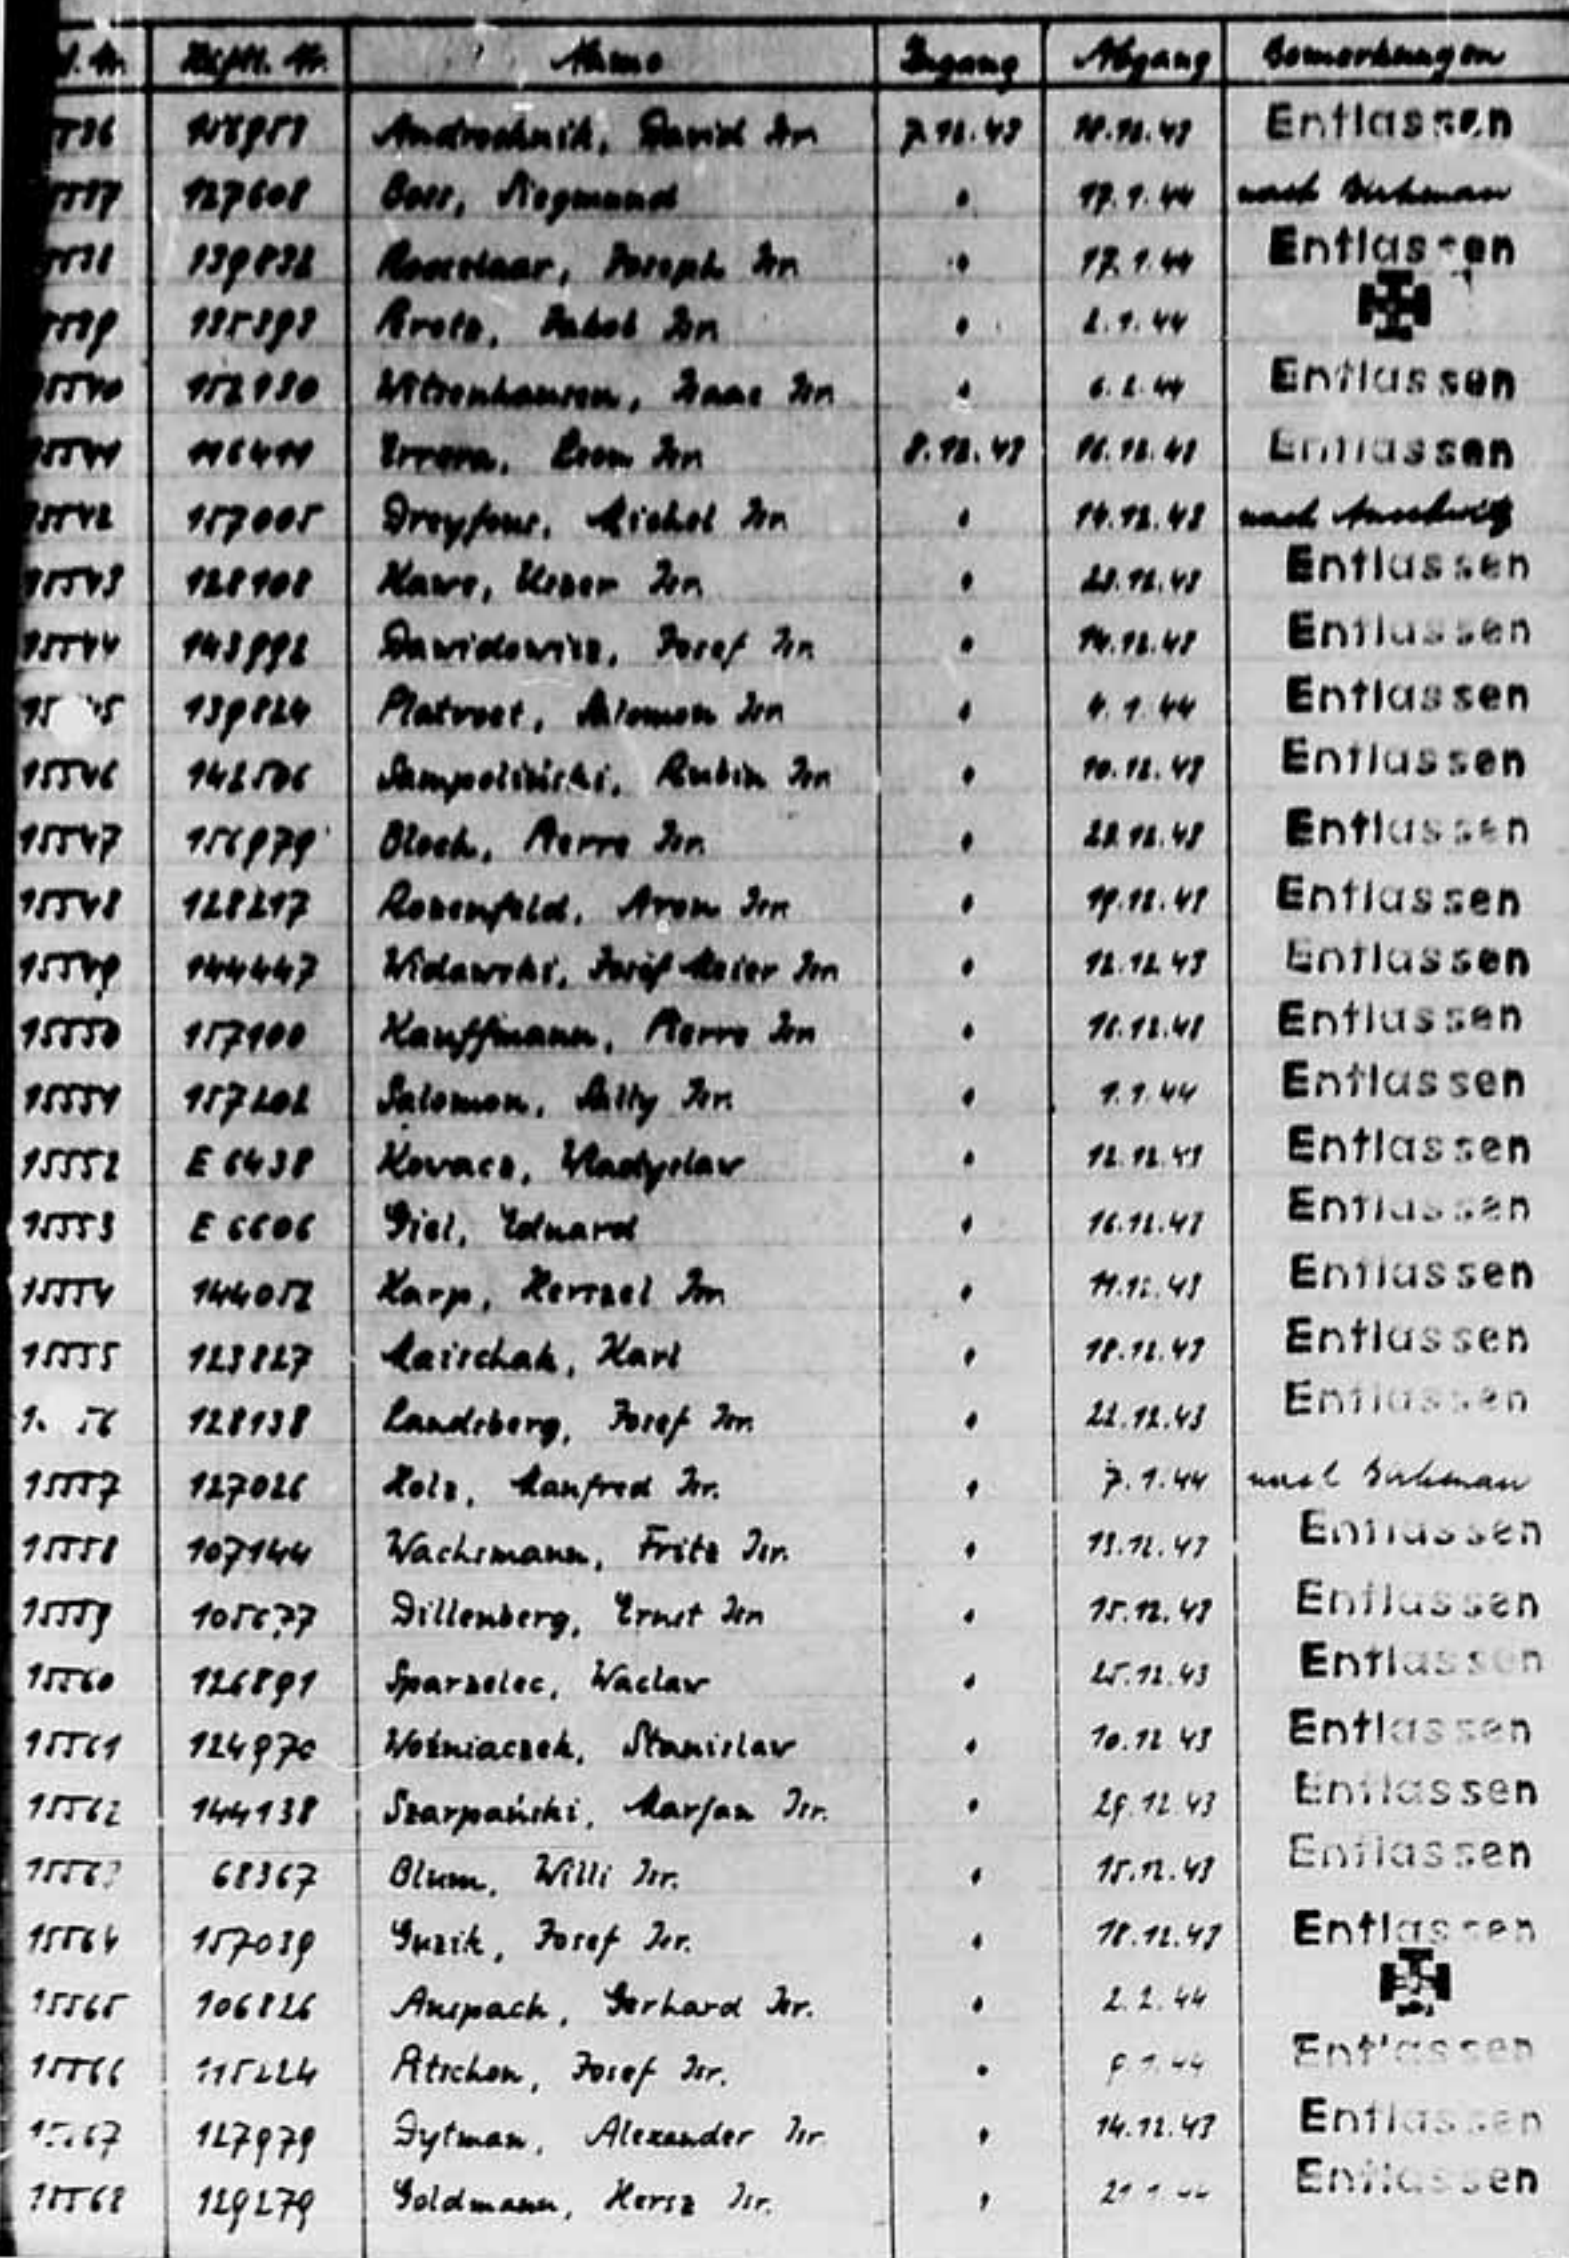 Nr. Häftl. Nr. Name Zugang Abgang Bemerkungen
David Isr. 7.12.43 Entlassen
127608 Siegmund " 17.1.44 nach Birkenau
139832 Joseph Isr. " 17.1.44 Entlassen
Jakob Isr. " 2.1.44
15540 152130 Witzenhausen, Isaac Isr. " 6.2.44 Entlassen
15541 116411 Errera, Leon Isr. 8.12.43 16.12.43 Entlassen
15542 157005 Dreyfous, Michel Isr. " 14.12.43 nach Auschwitz
15543 128108 Isr. " 23.12.43 Entlassen
15544 143992 Dawidowicz, Josef Isr. " 14.12.43 Entlassen
139824 Platvoet, Salomon Isr. " 4.1.44 Entlassen
15546 142506 Sampoliński, Rubin Isr. " 10.12.43 Entlassen
15547 156979 Bloch, Pierre Isr. " 23.12.43 Entlassen
15548 128217 Rosenfeld, Aron Isr. " 19.12.43 Entlassen
15549 144447 Widawski, Josef Meier Isr. " 12.12.43 Entlassen
15550 157100 Kauffmann, Pierre Isr. " 16.12.43 Entlassen
15551 157202 Salomon, Sally Isr. " 1.1.44 Entlassen
15552 E 6438 Kovacz, Wladyslaw " 12.12.43 Entlassen
15553 E 6606 Giel, Eduard " 16.12.43 Entlassen
15554 144052 Karp, Herszel Isr. " 11.12.43 Entlassen
15555 123827 Maischak, Karl " 18.12.43 Entlassen
128138 Landsberg, Josef Isr. " 22.12.43 Entlassen
15557 127026 Holz, Manfred Isr. " 7.1.44 nach Birkenau
15558 107144 Wachsmann, Fritz Isr. " 13.12.43 Entlassen
15559 105677 Dillenberg, Ernst Isr. " 15.12.43 Entlassen
15560 126891 Sparzelec, Waclaw " 25.12.43 Entlassen
15561 124970 Woźniaczek, Stanislaw " 10.12.43 Entlassen
15562 144138 Szarpański, Marjan Isr. " 29.12.43 Entlassen
68367 Blum, Willi Isr. " 15.12.43 Entlassen
15564 157039 Guzik, Josef Isr. " 18.12.43 Entlassen
15565 106826 Anspach, Gerhard Isr. " 2.2.44
15566 115224 Josef Isr. " Entlassen
127979 Dytman, Alexander Isr. " 14.12.43 Entlassen
15568 129279 Goldmann, Hersz Isr. " Entlassen